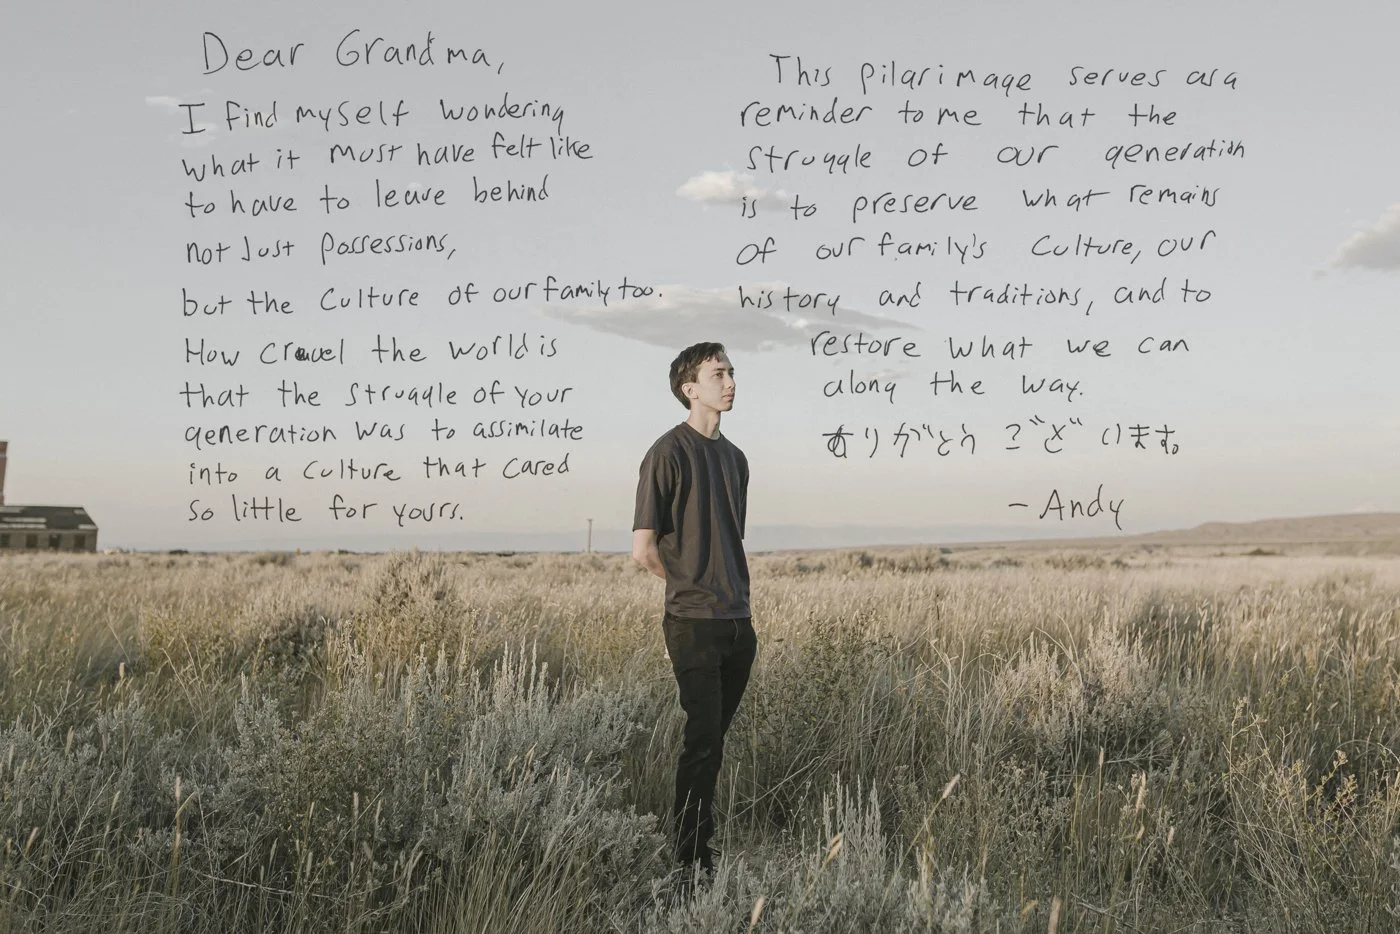 Dear Grandma,
I find myself wondering
what it must have felt like
to have to leave behind
not Just possessions,
but the culture of our family too.
How cruel the world is
that the struggle of your
generation was to assimilate
into a culture that cared
so little for yours.
This pilgrimage serves as a
reminder to me that the
struggle of our generation
is to preserve what remains
of our family's culture, our
history and traditions, and to
restore what we can
along the way.
ありがとうございます。
- Andy